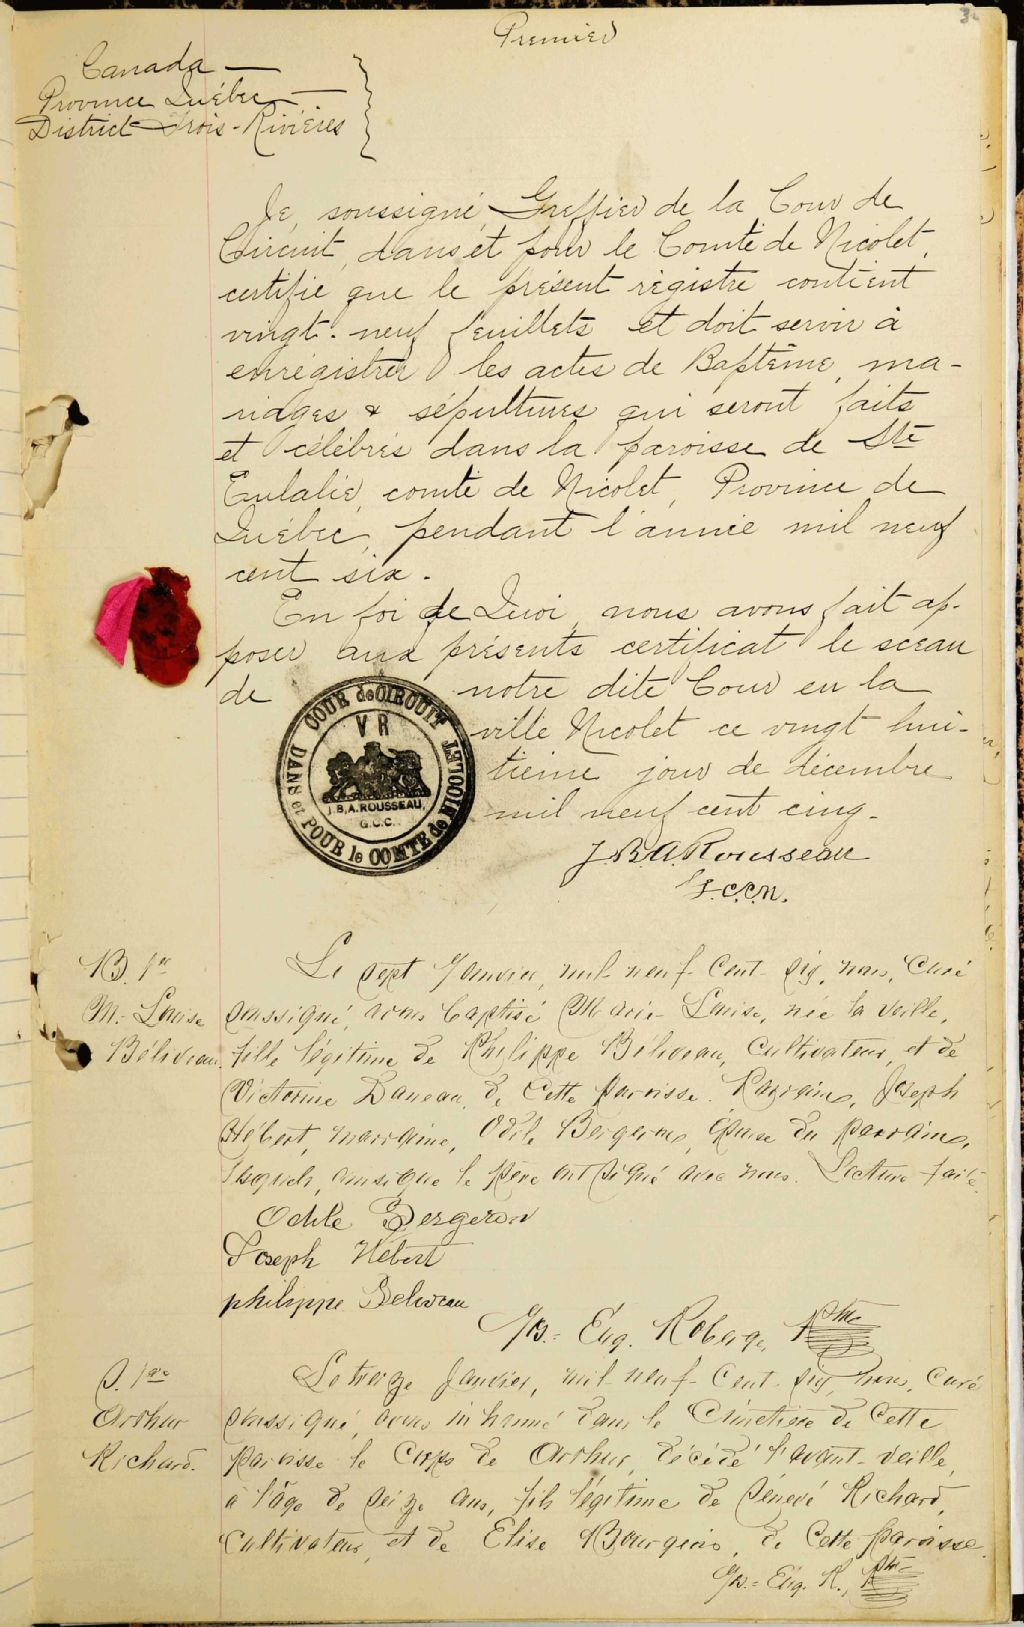 Premier
Canada
Province Québec
District Trois-Rivières
Je, soussigné, Greffier de la Cour de
Circuit, dans et pour le Comté de Nicolet,
certifie que le présent régistre contient
vingt-neuf feuillets et doit servir à
enrégistrer les actes de Baptême, ma-
riages & sépultures qui seront faits
et célébrés dans la paroisse de Ste
Eulalie, comté de Nicolet, Province de
Québec, pendant l'année mil neuf
cent six.
En foi de Quoi, nous avons fait ap-
poser aux présents certificat le sceau
de notre dite Cour en la
ville Nicolet ce vingt hui-
tième jour de décembre
mil neuf cent cinq.
J.B.A. Rousseau
G.C.C.N.
COUR de CIRCUIT
DANS et POUR le COMTÉ de NICOLET
V R
J.B.A. ROUSSEAU,
G.C.C.
B. 1er
M.-Louise
Béliveau
Le sept Janvier, mil-neuf-cent-six, nous, Curé
soussigné, avons baptisé Marie-Louise, née la veille,
fille légitime de Philippe Béliveau, Cultivateur, et de
Victorine Daneau, de Cette paroisse. Parrain, Joseph
Hébert, marraine, Odile Bergeron, Épouse du parrain,
lesquels, ainsi que le père ont signé avec nous. Lecture faite.
Odile Bergeron
Joseph Hébert
philippe Beliveau
Jos.-Eug. Roberge, Ptre
S. 1ère
Arthur
Richard.
Le treize Janvier, mil-neuf-Cent-six, nous, Curé
soussigné, avons inhumé dans le Cimetière de Cette
paroisse le Corps de Arthur, décédé l'avant-veille,
à l'âge de seize ans, fils légitime de Sénevé Richard,
Cultivateur, et de Elise Bourgeois, de Cette paroisse.
Jos.-Eug. R., Ptre